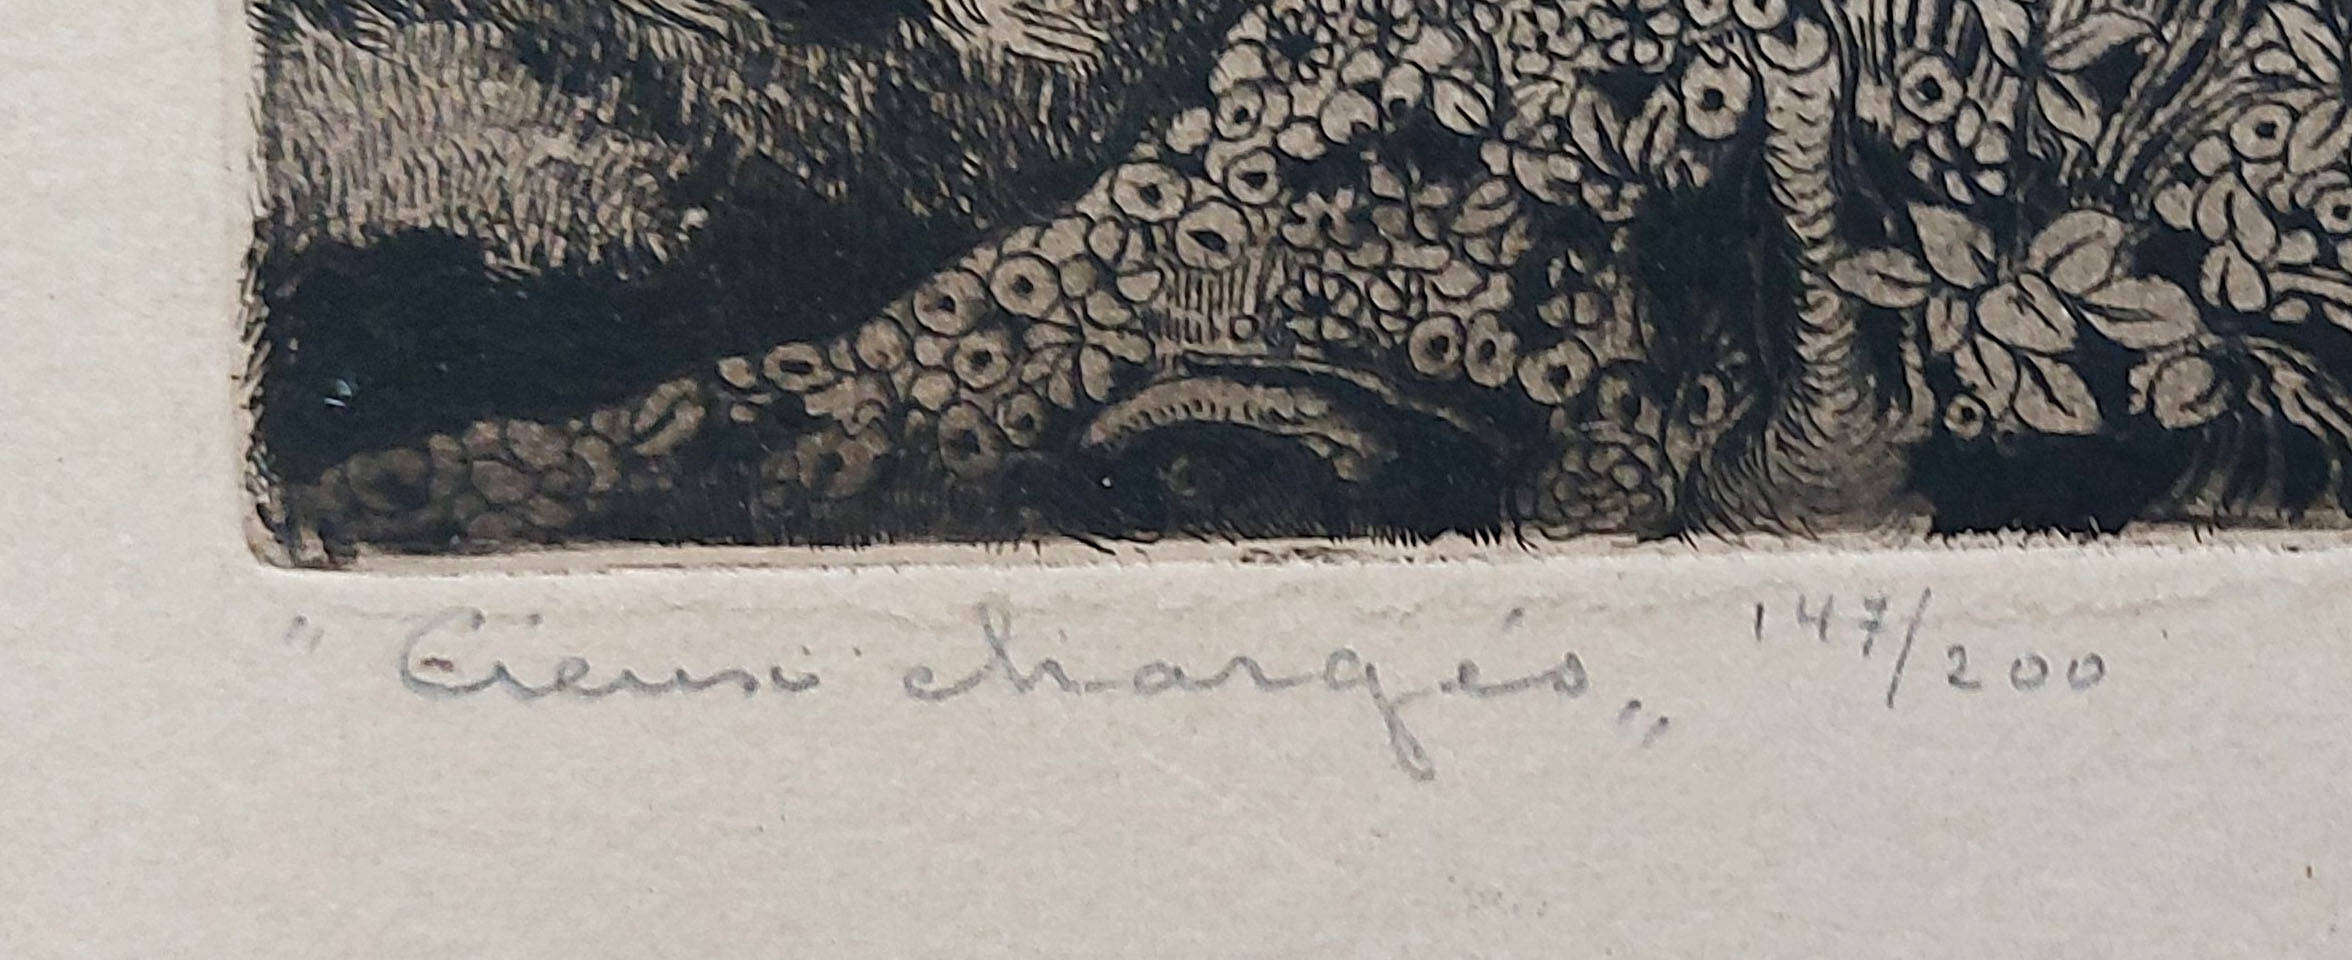 "Cieux chargés„ 147/200